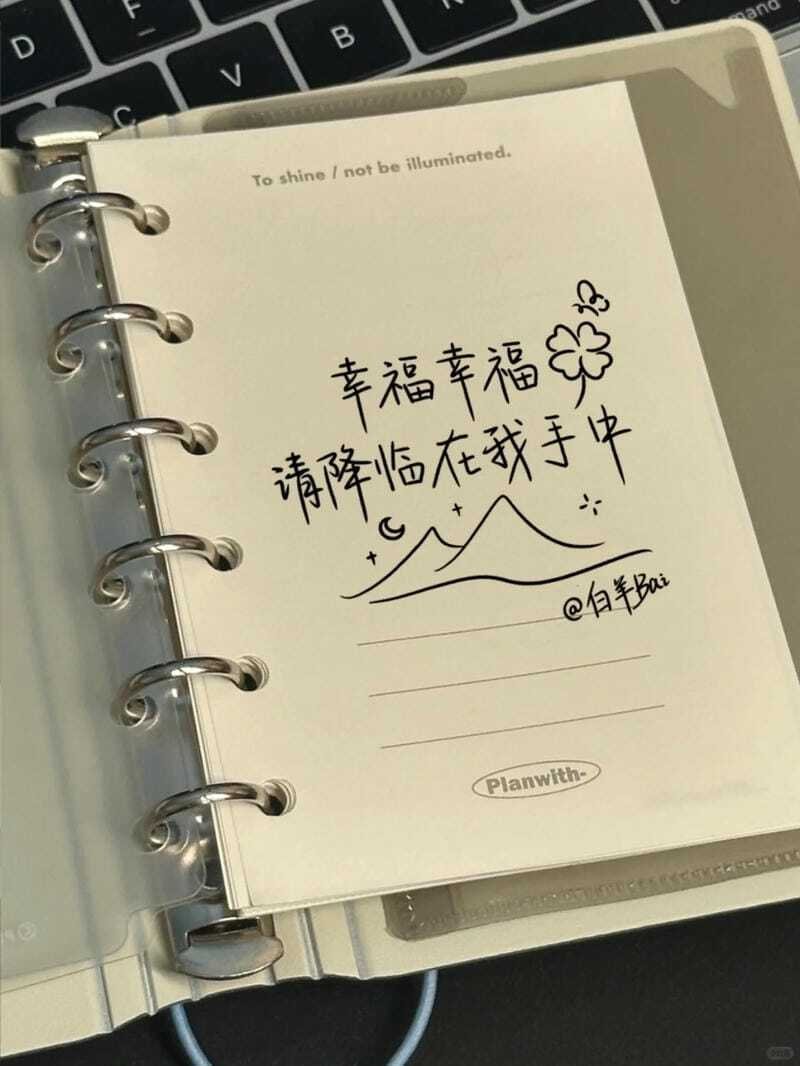 D
F
C
V
B
N
mand
To shine / not be illuminated.
幸福幸福
请降临在我手中
@白羊Bai
Planwith-